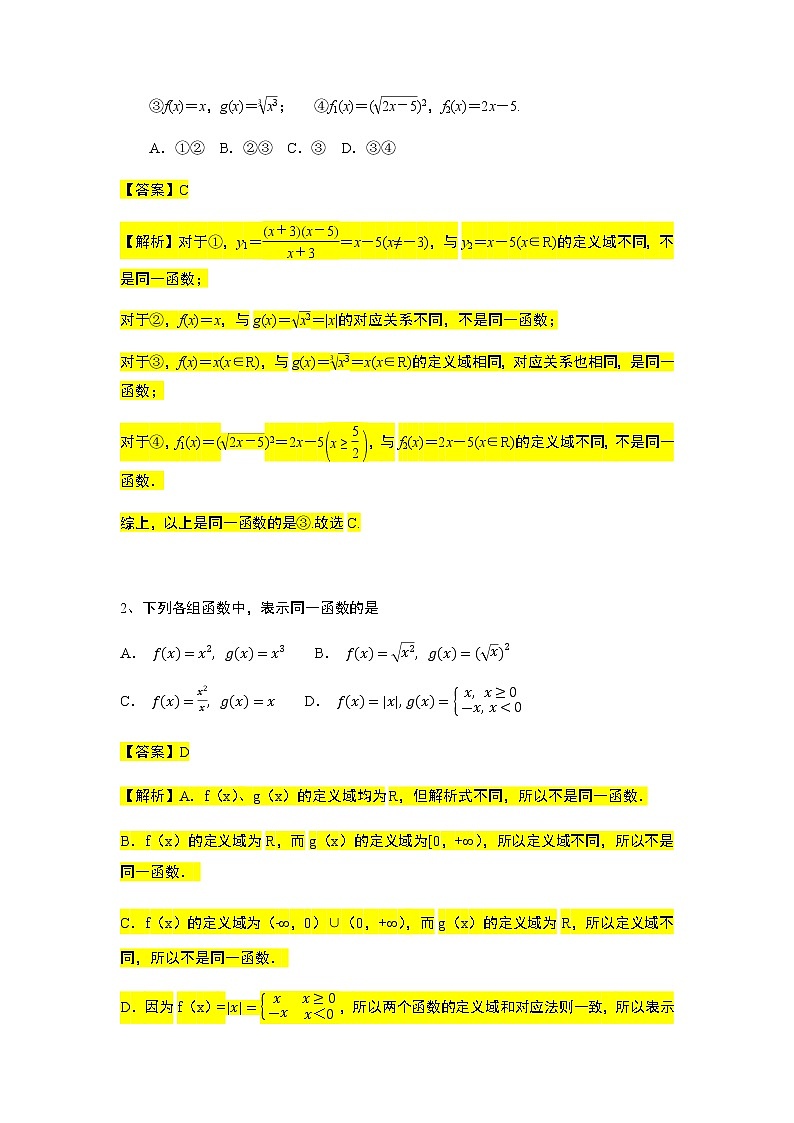 ③f(x)＝x，g(x)＝∛x³；　④f₁(x)＝(√(2x－5))²，f₂(x)＝2x－5.
A．①②　B．②③　C．③　D．③④
【答案】C
【解析】对于①，y₁＝(x＋3)(x－5)/(x＋3)＝x－5(x≠－3)，与 y₂＝x－5(x∈R)的定义域不同，不
是同一函数；
对于②，f(x)＝x，与 g(x)＝√x²＝|x|的对应关系不同，不是同一函数；
对于③，f(x)＝x(x∈R)，与 g(x)＝∛x³＝x(x∈R)的定义域相同，对应关系也相同，是同一
函数；
对于④，f₁(x)＝(√(2x－5))²＝2x－5(x ≥ 5/2)，与 f₂(x)＝2x－5(x∈R)的定义域不同，不是同一
函数．
综上，以上是同一函数的是③.故选 C.
2、下列各组函数中，表示同一函数的是
A． f(x)=x², g(x)=x³　B． f(x)=√x², g(x)=(√x)²
C． f(x)=x²/x, g(x)=x　D． f(x)=|x|, g(x)={x, x≥0 −x, x<0
【答案】D
【解析】A．f（x）、g（x）的定义域均为 R，但解析式不同，所以不是同一函数．
B．f（x）的定义域为 R，而 g（x）的定义域为[0，+∞），所以定义域不同，所以不是
同一函数．
C．f（x）的定义域为（-∞，0）∪（0，+∞），而 g（x）的定义域为 R，所以定义域不
同，所以不是同一函数．
D．因为 f（x）=|x|={x x≥0 −x x<0，所以两个函数的定义域和对应法则一致，所以表示